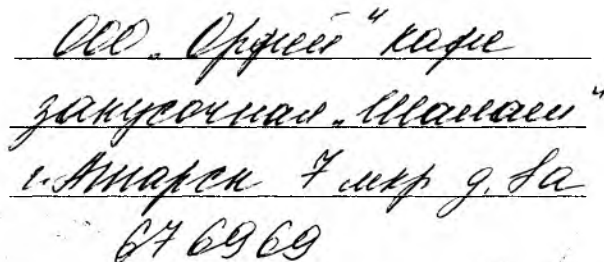 ООО „Орфей" кафе
закусочная „Шалаш"
г. Ангарск 7 мкр д.
676969